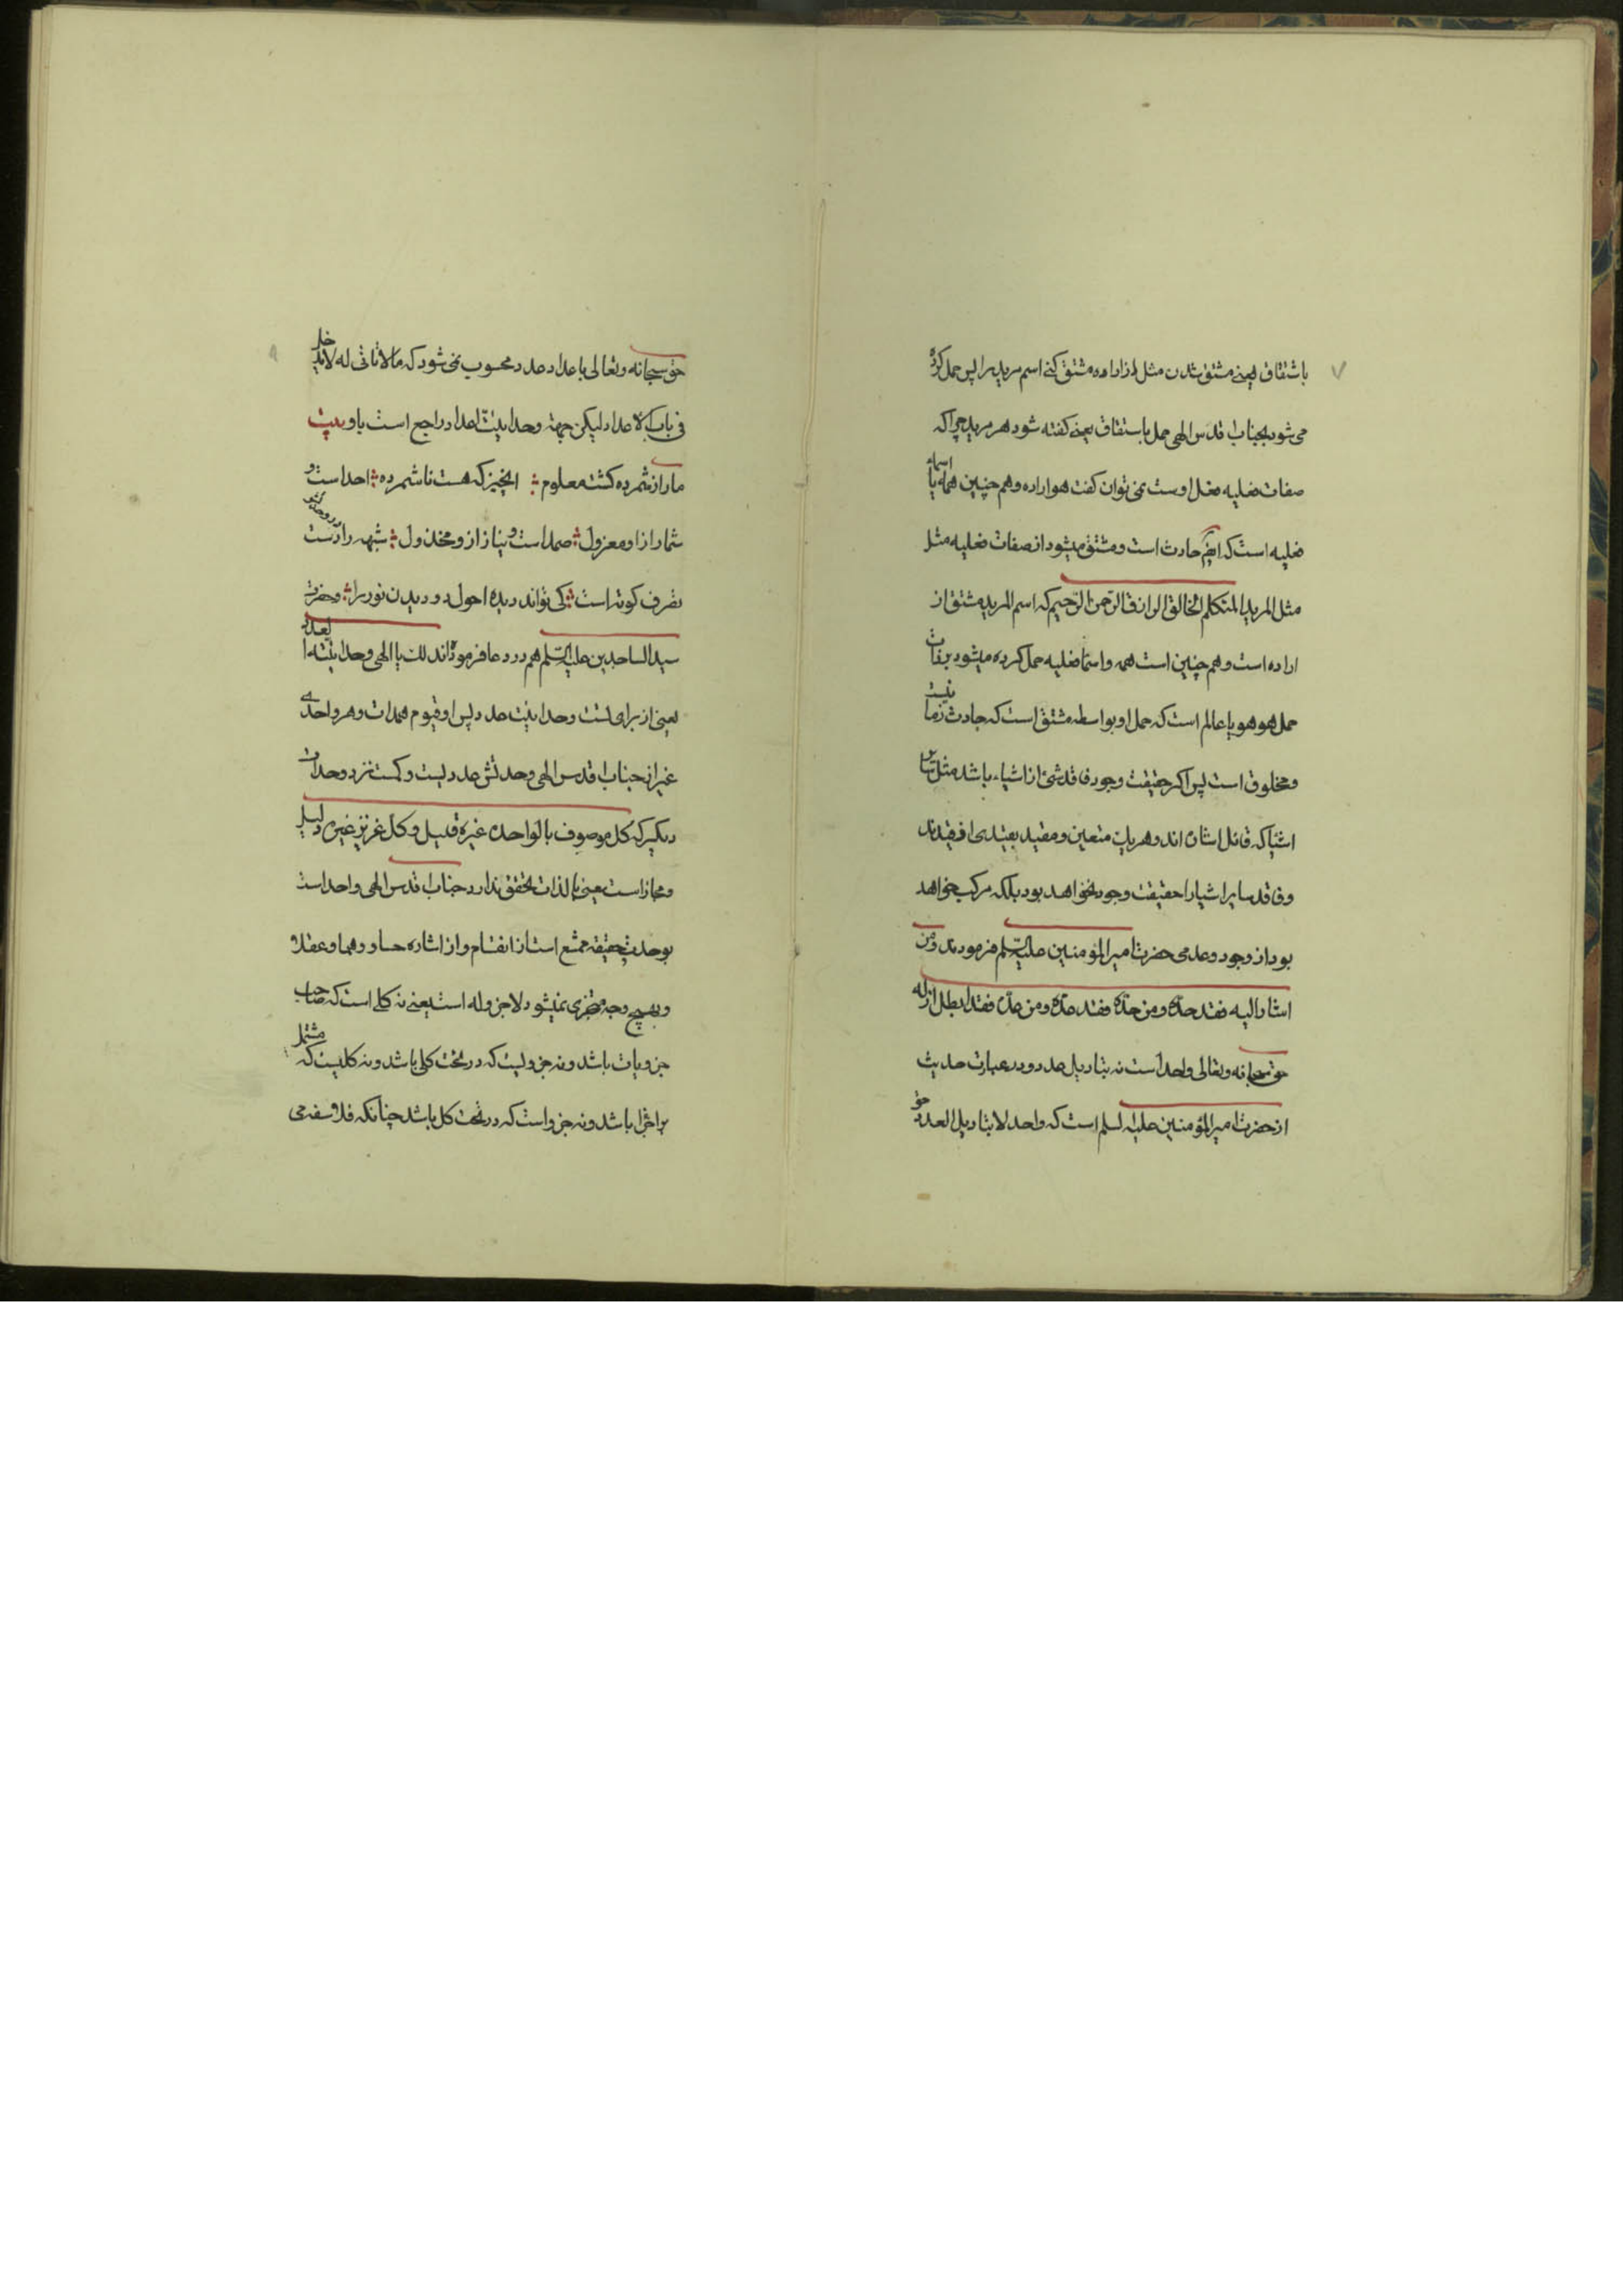 باشتقاق یعنی مشتق شدن مثل از اراده مشتق کنی اسم مرید را پس حمل کرده
می شود بجناب قدس الهی حمل باشتقاق یعنی کفته شود هو مرید چرا که
صفات فعلیه فعل اوست نمی توان کفت هو اراده و هم چنین همه اسماء
فعلیه است که ایضا حادث است و مشتق میشود از صفات فعلیه مثل
مثل المرید المتکلم الخالق الرازق الرحمن الرحیم که اسم المرید مشتق از
اراده است و هم چنین است همه و اسماء فعلیه حمل کرده میشود
حمل هو هو یا عالم است که حمل او بواسطه مشتق است که حادث
و مخلوق است پس اکر حقیقت وجود فاقد شئ از اشیاء باشد مثل
اشیا که قائل اشان اند و هر یک متعین و مقید بقیدی
و فاقد سایر اشیا را حقیقت وجود نخواهد بود بلکه مرکب خواهد
بود از وجود و عدمی حضرت امیر المؤمنین علیه السلم فرمودند و من
اشار الیه فقد حده و من حده فقد عده و من عده فقد ابطل ازله
حق سبحانه و تعالی واحد است نه بتاویل عدد و در عبارت حدیث
از حضرت امیر المؤمنین علیه السلم است که واحد لا بتاویل العدد
حق سبحانه و تعالی با عداد عدد محسوب نمی شود که ما لا ثانی له لا یدخل
فی باب الاعداد لیکن جهة وحدانیت اعداد راجع است باو بیت
ما را از شمرده کشته معلوم انچیز که هست ناشمرده احد است و
شمار از او معزول صمد است و نیاز از او مخذول شبهه را دست
تصرف کوته است کی تواند دیده احول دو دیدن نور را و حضرت
سید الساجدین علیه السلم هم در دعا فرموده اند لک یا الهی وحدانیته العدد
یعنی از برای تست وحدانیت عدد پس او قیوم همه است و هر واحدی
غیر از جناب قدس الهی وحدتش عددیست و کمست نزد وحدت
دیکر که کل موصوف بالواحده غیره قلیل و کل عزیز غیره ذلیل
و مجاز است یعنی بالذات تحقق ندارد جناب قدس الهی واحد است
بوحدت حقیقه ممتنع است از انقسام و از اشاره حسا و وهما و عقلا
و بهیچ وجه متجزی نمیشود و لا جزو له است یعنی نه کلی است که صاحب
جزویات باشد و نه جزویست که در تحت کلی باشد و نه کلیست که مشتمل
بر اجزا باشد و نه جزو است که در تحت کل باشد چنانکه فلاسفه می